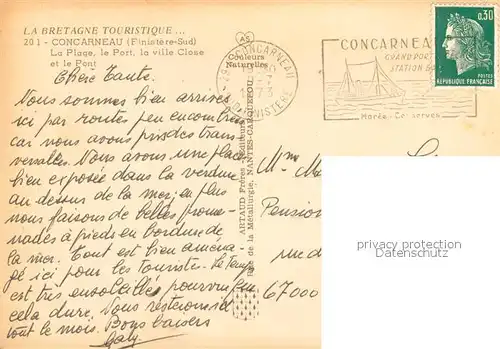 LA BRETAGNE TOURISTIQUE...
201 - CONCARNEAU (Finistère-Sud)
La Plage, le Port, la ville Close
et le Pont
AS
Couleurs
Naturelles
ARTAUD Frères - Editeurs
Rue de la Métallurgie, NANTES-CARQUEFOU
29 CONCARNEAU
FINISTERE
CONCARNEAU
GRAND PORT
STATION
Marée Conserves
0,30
POSTES
REPUBLIQUE FRANÇAISE
Chère Tante.
Nous sommes bien arrivés
ici par routes peu encombrées
car nous avons pris des trans-
versales. Nous avons une place
bien exposée dans la verdure
au dessus de la mer; en plus
nous faisons de belles prome-
nades à pieds en bordure de
la mer. Tout est bien aména-
gé ici pour les Touristes. Le temps
est très ensoleillé, pourvu que
cela dure. Nous resterons ici
tout le mois. Bons baisers
Gaby
Mme
Pension
rue d
67000
propriété privée
ansichtskartenversand